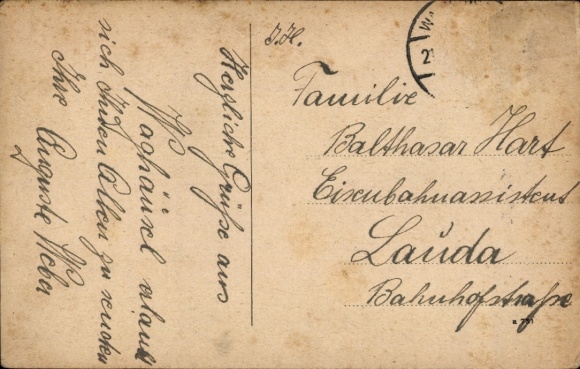 Herzliche Grüße aus
Waghäusel
sich Ihnen Allen zu senden
Ihre Auguste Weber
J.H.
Familie
Balthasar Hart
Eisenbahnassistent
Lauda
Bahnhofstraße